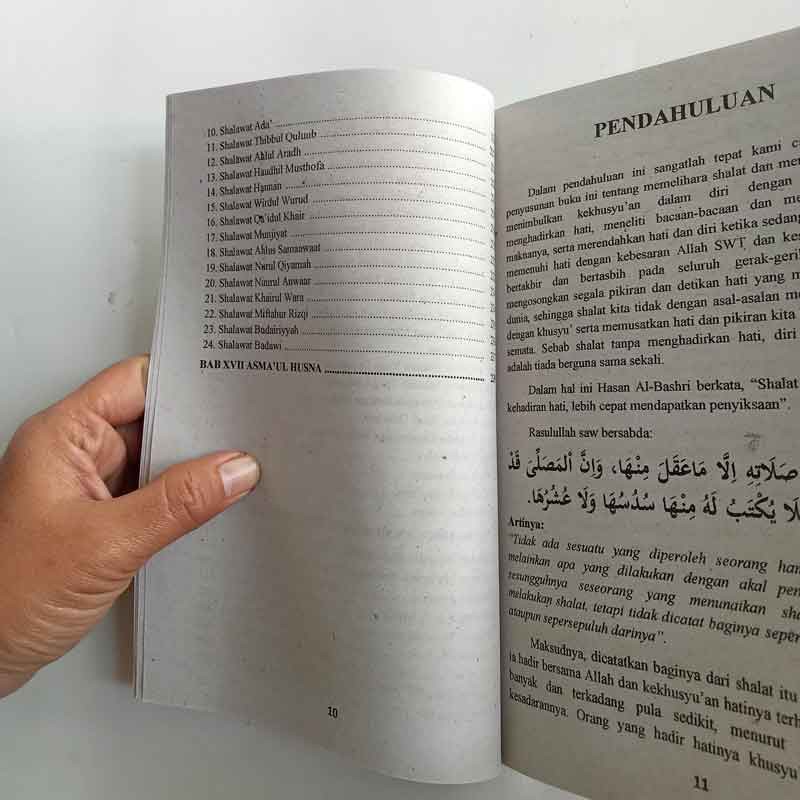 10. Shalawat Ada'
11. Shalawat Thibbul Quluub
12. Shalawat Ahlul Aradh
13. Shalawat Haudhil Musthofa
14. Shalawat Hannan
15. Shalawat Wirdul Wurud
16. Shalawat Qa'idul Khair
17. Shalawat Munjiyat
18. Shalawat Ahlus Samaawaat
19. Shalawat Nurul Qiyamah
20. Shalawat Nuurul Anwaar
21. Shalawat Khairul Wara
22. Shalawat Miftahur Rizqi
23. Shalawat Badairiyyah
24. Shalawat Badawi
BAB XVII ASMA'UL HUSNA
10
PENDAHULUAN
Dalam pendahuluan ini sangatlah tepat kami
penyusunan buku ini tentang memelihara shalat dan
menimbulkan kekhusyu'an dalam diri dengan
menghadirkan hati, meneliti bacaan-bacaan dan
maknanya, serta merendahkan hati dan diri ketika sedang
memenuhi hati dengan kebesaran Allah SWT dan
bertakbir dan bertasbih pada seluruh
mengosongkan segala pikiran dan detikan hati yang
dunia, sehingga shalat kita tidak dengan asal-asalan
dengan khusyu' serta memusatkan hati dan pikiran kita
semata. Sebab shalat tanpa menghadirkan hati, diri
adalah tiada berguna sama sekali.
Dalam hal ini Hasan Al-Bashri berkata, "Shalat
kehadiran hati, lebih cepat mendapatkan penyiksaan".
Rasulullah saw bersabda:
صَلَاتِهِ اِلَّا مَاعَقَلَ مِنْهَا، وَاِنَّ الْمُصَلِّىَ قَدْ
يُكْتَبُ لَهُ مِنْهَا سُدُسُهَا وَلَا عُشُرُهَا.
Artinya:
"Tidak ada sesuatu yang diperoleh seorang
melainkan apa yang dilakukan dengan akal
resungguhnya seseorang yang menunaikan
melakukan shalat, tetapi tidak dicatat baginya
ataupun sepersepuluh darinya".
Maksudnya, dicatatkan baginya dari shalat itu
ia hadir bersama Allah dan kekhusyu'an hatinya
banyak dan terkadang pula sedikit, menurut
kesadarannya. Orang yang hadir hatinya
11